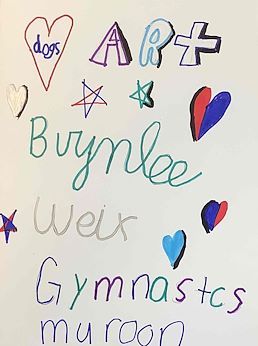 dogs ART
Brynlee
Weir
Gymnastcs
muroon